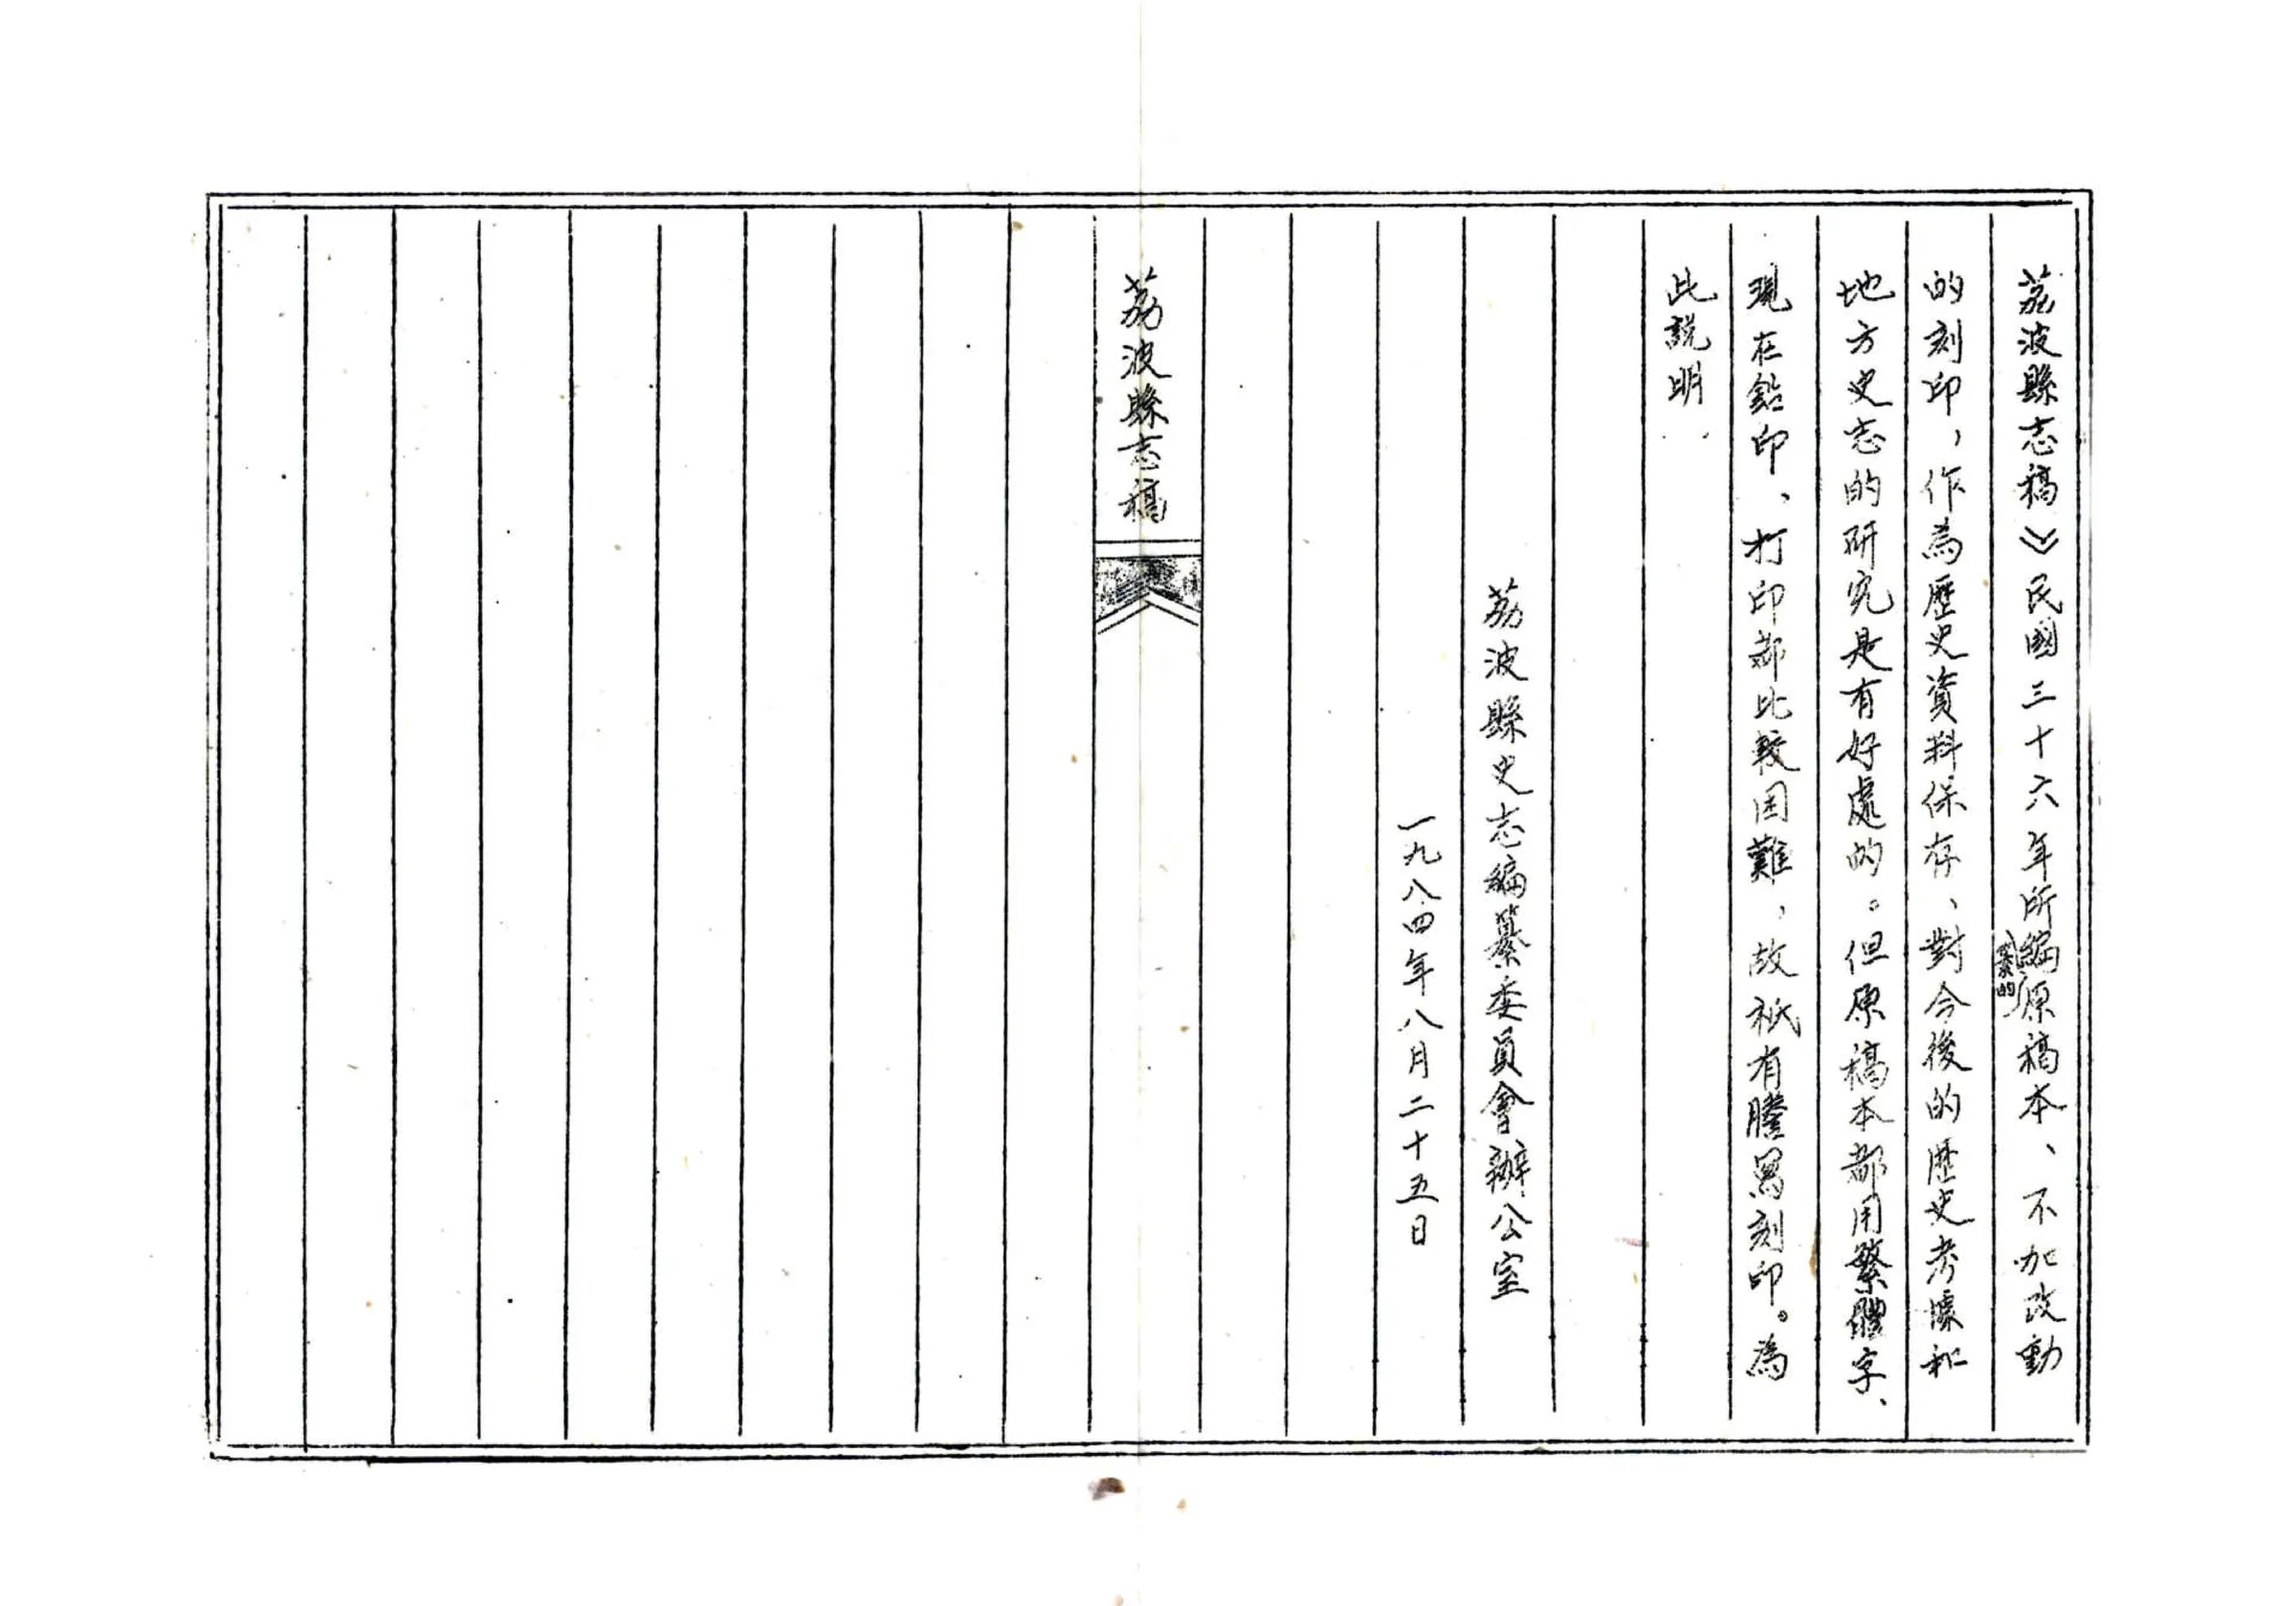 荔波縣志稿》民國三十六年所編纂的原稿本、不加改動
的刻印，作為歷史資料保存、對今後的歷史考據和
地方史志的研究是有好處的。但原稿本都用繁體字、
現在鉛印、打印都比較困難，故祇有謄寫刻印。為
此說明
荔波縣史志編纂委員會辦公室
一九八四年八月二十五日
荔波縣志稿